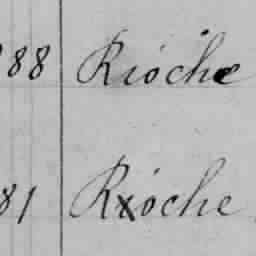 88 Rioche
81 Rioche